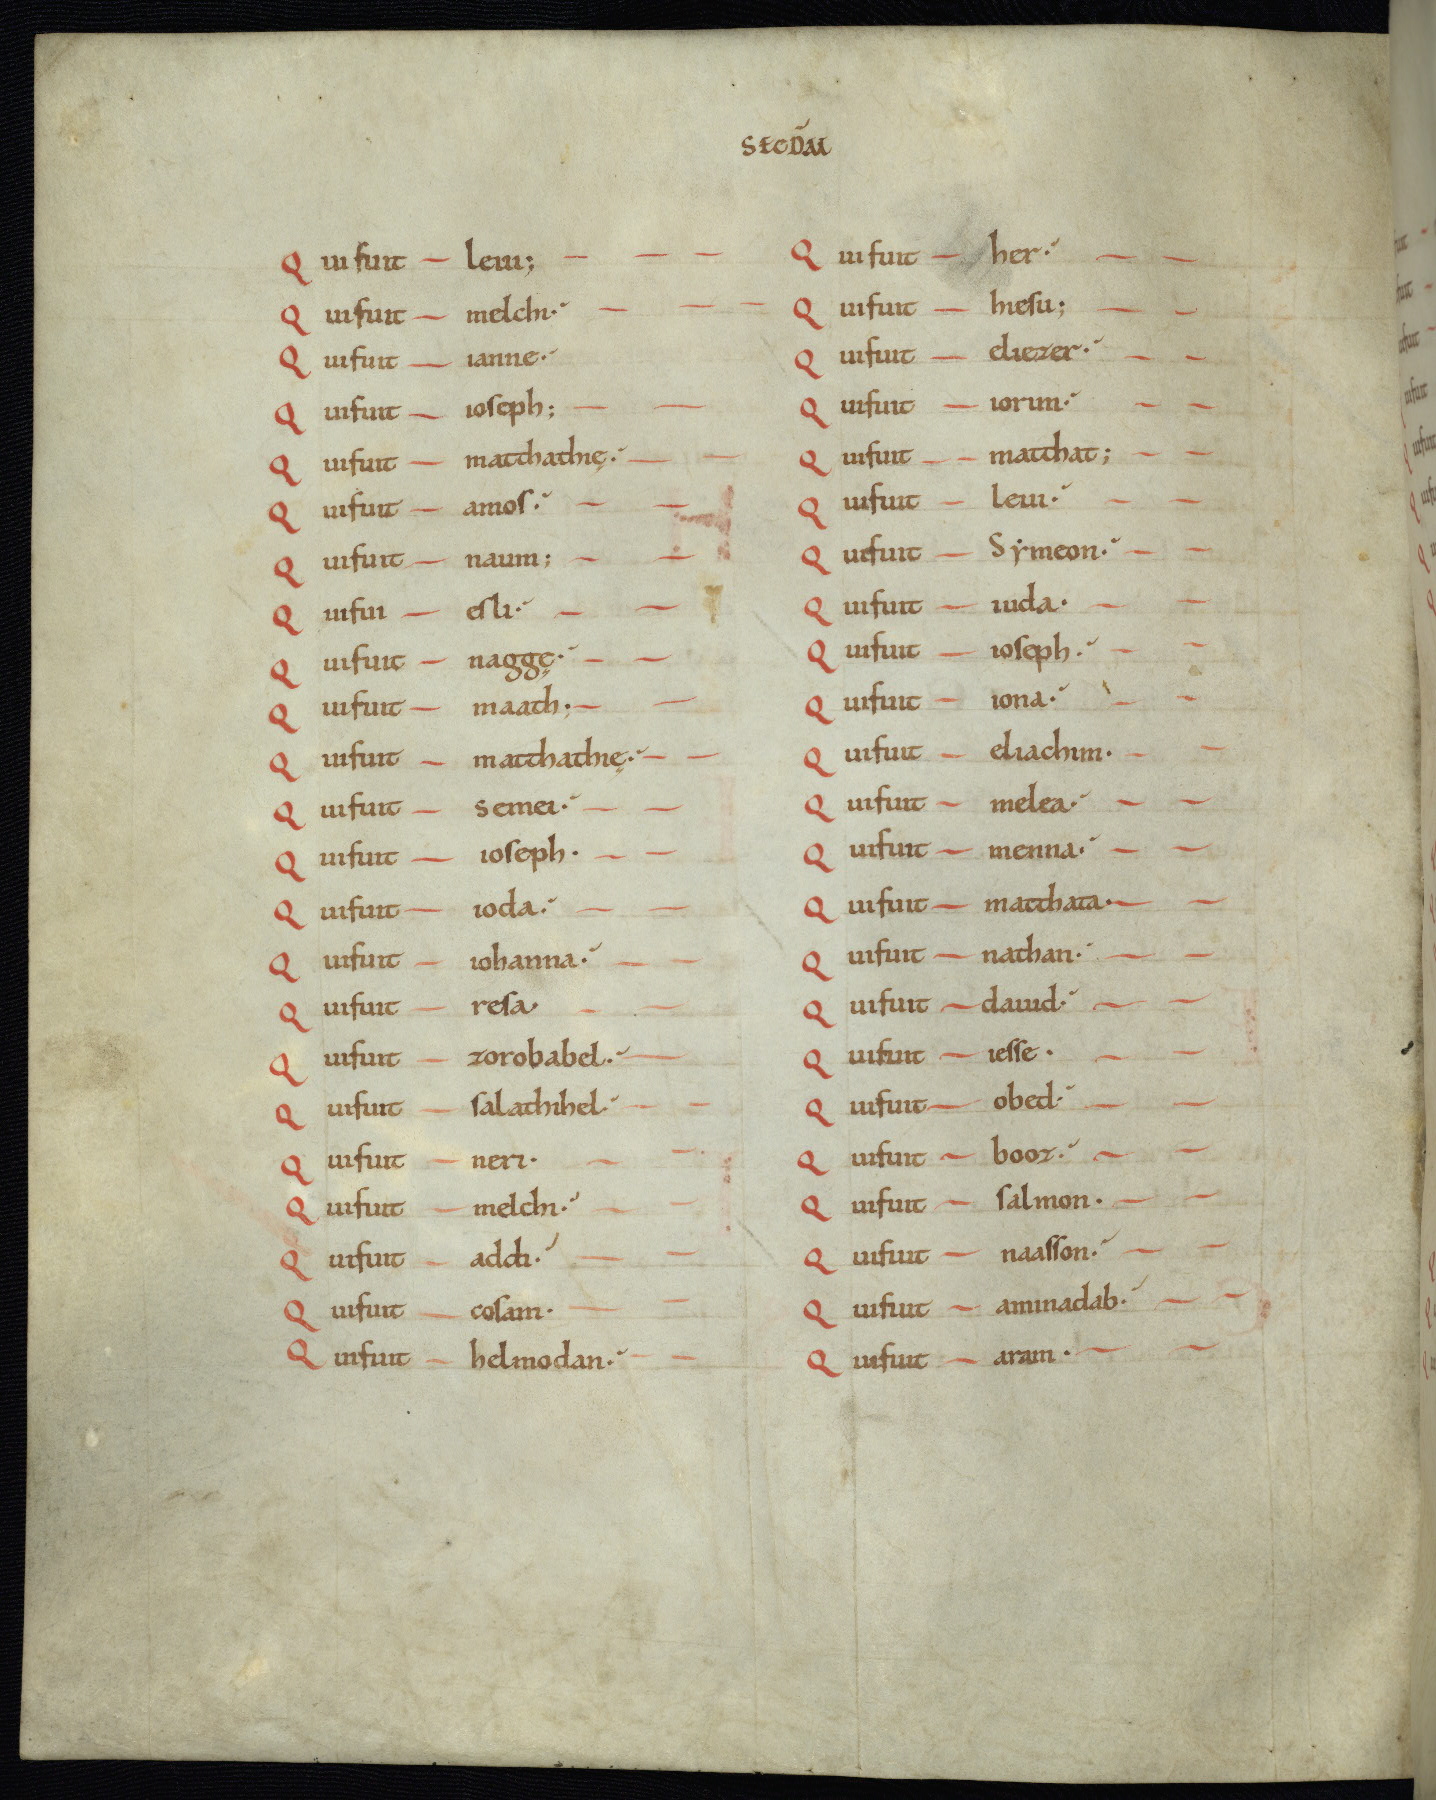 SECD̄M
Qui fuit leui;
Qui fuit melchi.
Qui fuit ianne.
Qui fuit ioseph;
Qui fuit matthathię.
Qui fuit amos.
Qui fuit naum;
Qui fui esli.
Qui fuit naggę.
Qui fuit maath;
Qui fuit matthathię.
Qui fuit semei.
Qui fuit ioseph.
Qui fuit ioda.
Qui fuit iohanna.
Qui fuit resa.
Qui fuit zorobabel.
Qui fuit salathihel.
Qui fuit neri.
Qui fuit melchi.
Qui fuit addi.
Qui fuit cosam.
Qui fuit helmodan.
Qui fuit her.
Qui fuit hiesu;
Qui fuit eliezer.
Qui fuit iorim.
Qui fuit matthat;
Qui fuit leui.
Qui fuit Sẏmeon.
Qui fuit iuda.
Qui fuit ioseph.
Qui fuit iona.
Qui fuit eliachim.
Qui fuit melea.
Qui fuit menna.
Qui fuit matthata.
Qui fuit nathan.
Qui fuit dauid.
Qui fuit iesse.
Qui fuit obed.
Qui fuit booz.
Qui fuit salmon.
Qui fuit naasson.
Qui fuit aminadab.
Qui fuit aram.